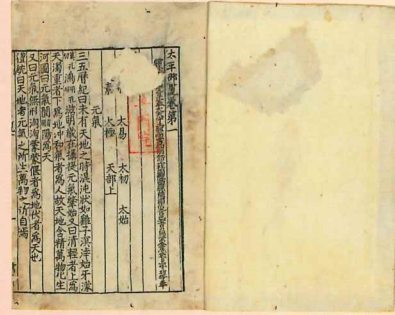 太平御覽卷第一
太易 太初 太始
素 太極 天部上
元氣
三五曆紀曰未有天地之時混沌狀如雞子溟涬始牙濛
鴻滋萌歲在攝提元氣肇始又曰清輕者上爲
天濁重者下爲地冲和氣者爲人故天地含精萬物化生
河圖曰元氣闓陽爲天
又曰元氣無形洶洶蒙蒙偃者爲地伏者爲天也
禮統曰天地者元氣之所生萬物之所自焉